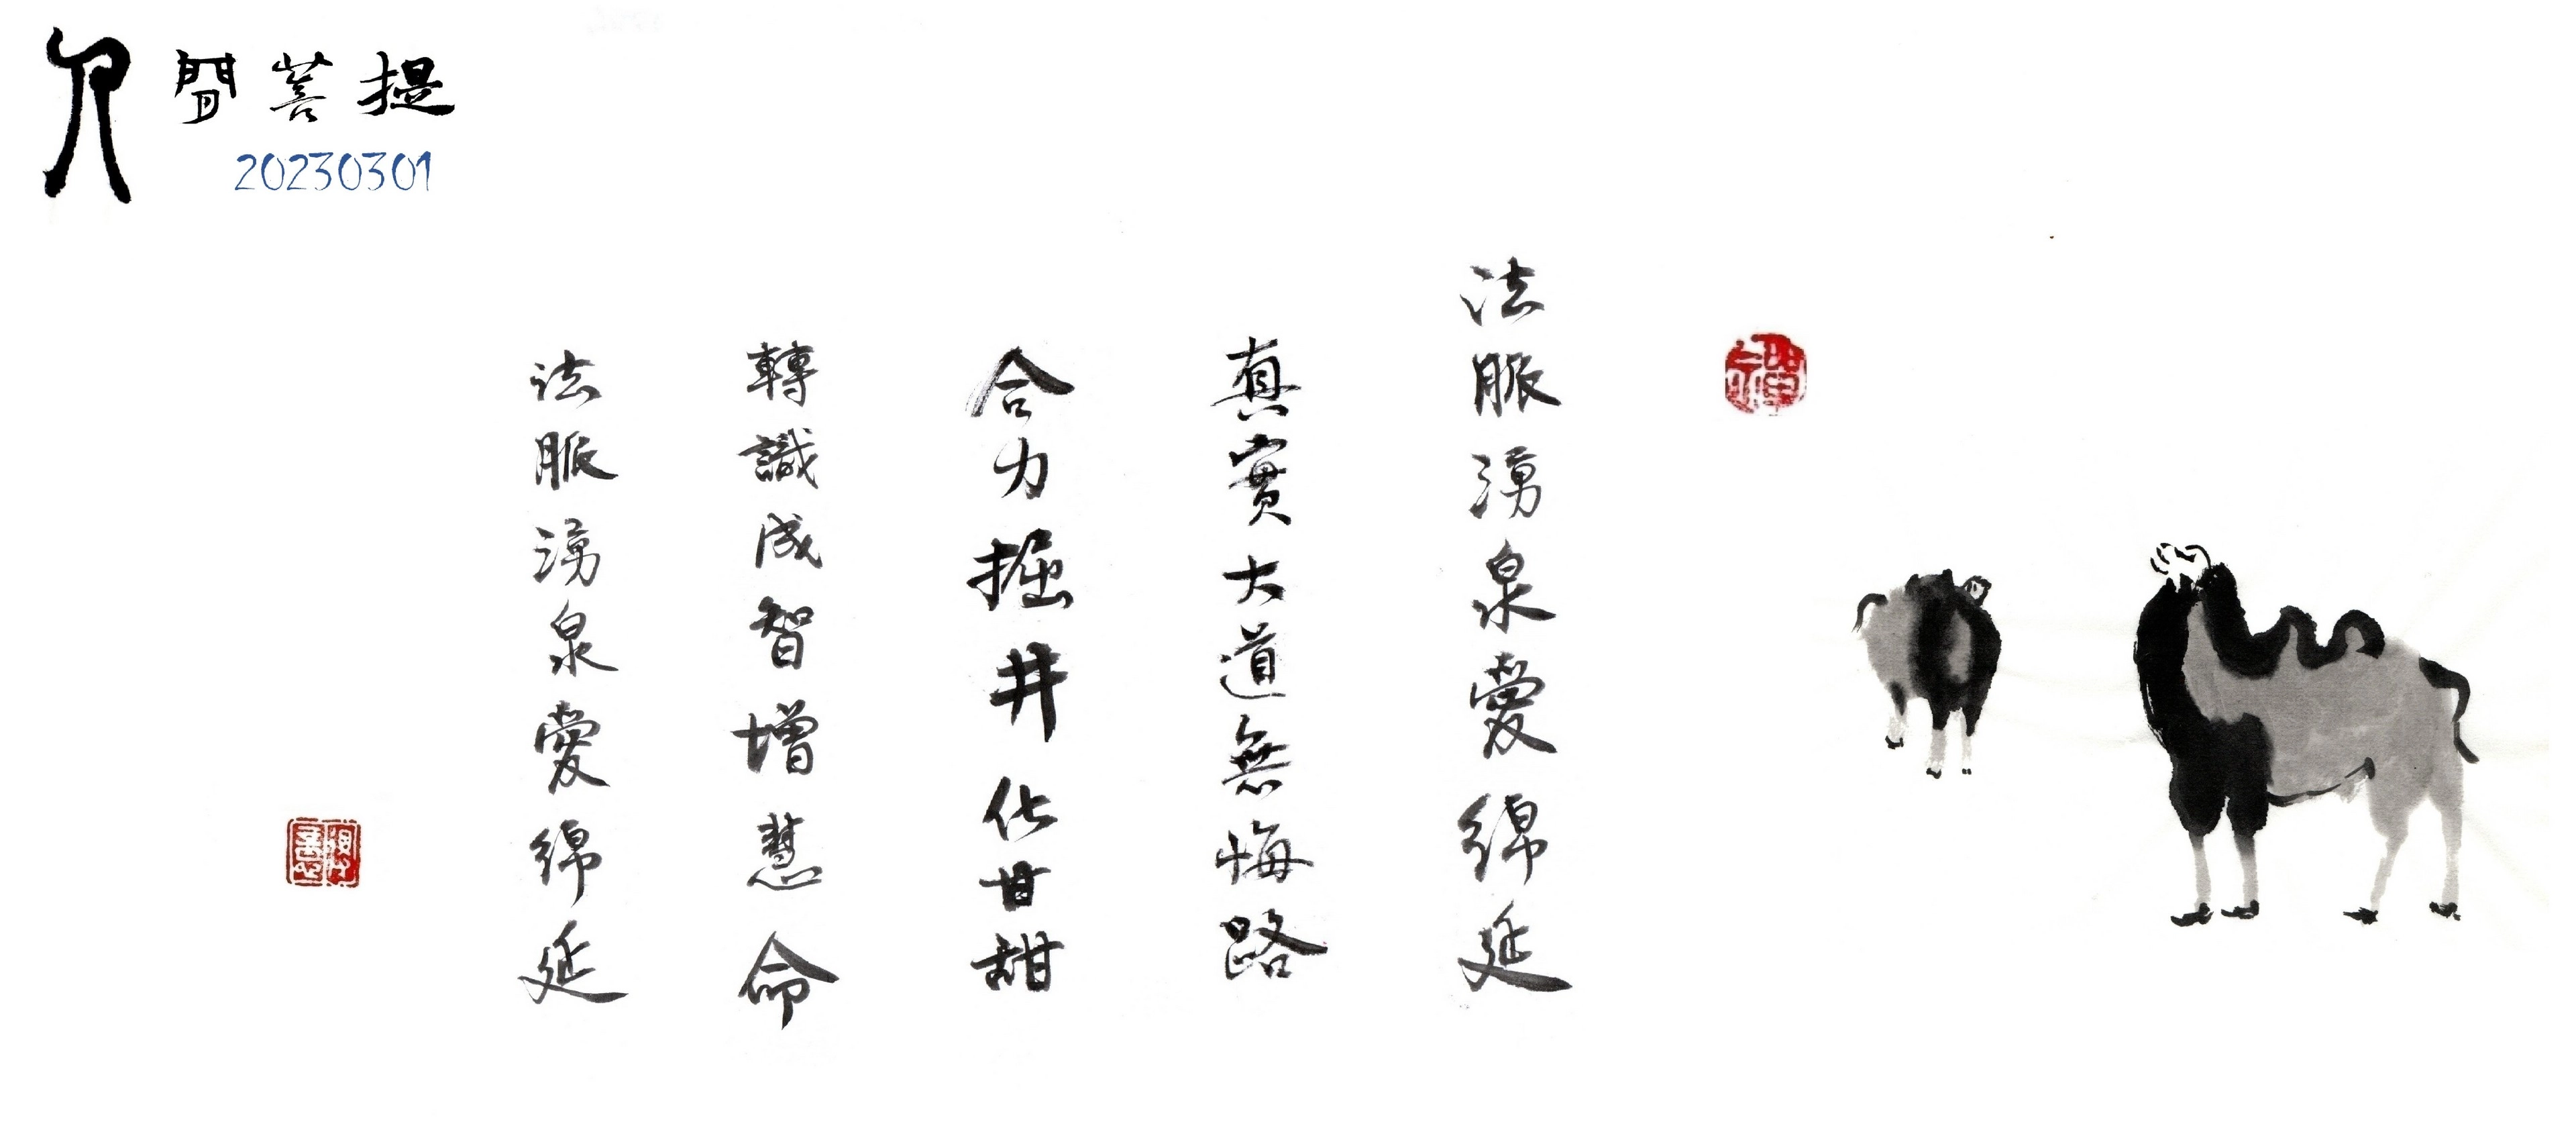 人間菩提
20230301
法脈湧泉愛綿延
真實大道無悔路
合力掘井化甘甜
轉識成智增慧命
法脈湧泉愛綿延